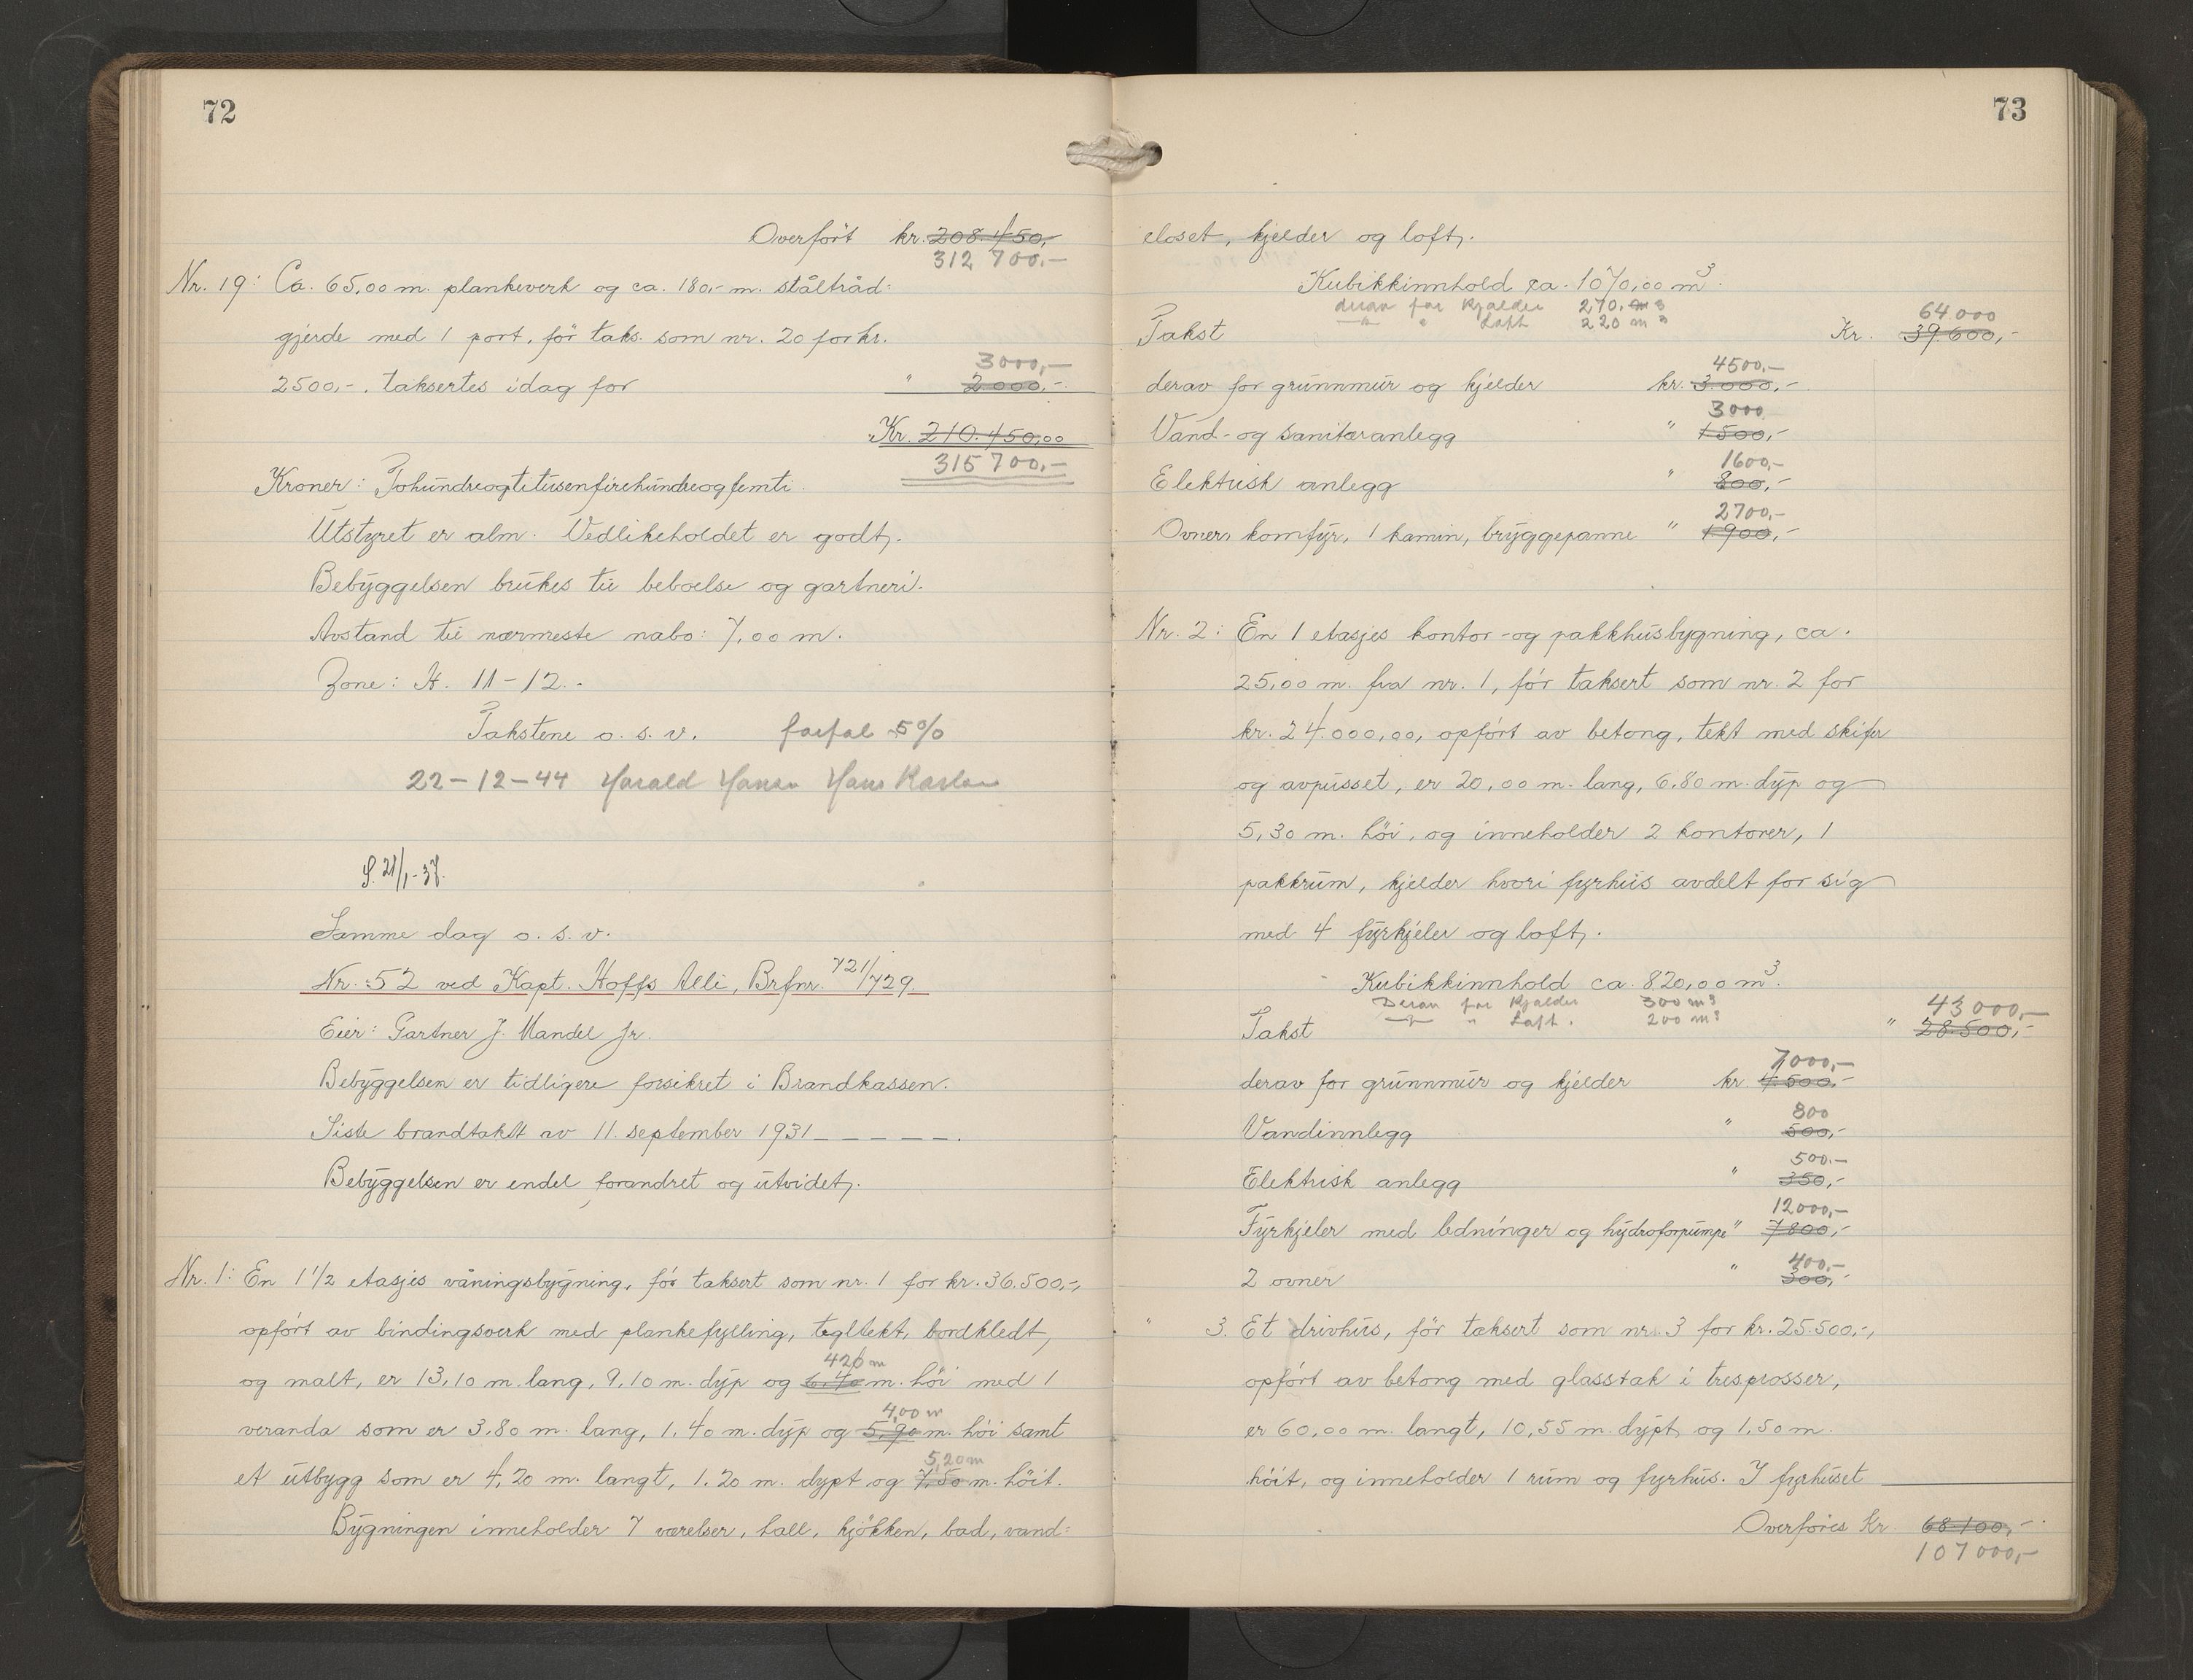 72
Overført kr. 208.450,-
312 700.-
Nr. 19: Ca. 65,00 m. plankeverk og ca. 180,- m. ståltråd-
gjerde med 1 port, før taks. som nr. 20 for kr.
3000,-
2500,-, taksertes idag for " 2000,-
Kr. 210.450,00
315 700,-
Kroner: Tohundreogtitusenfirehundreogfemti.
Utstyret er alm. Vedlikeholdet er godt.
Bebyggelsen brukes til beboelse og gartneri.
Avstand til nærmeste nabo: 7,00 m.
Zone: A. 11-12.
Takstene o. s. v. forfal 5%
22-12-44 Harald Hansen Hans Karlsen
S. 21/1-37.
Samme dag o. s. v.
Nr. 52 ved Kapt. Hoffs Allé, Brfnr. 721/729.
Eier: Gartner J. Mandel jr.
Bebyggelsen er tidligere forsikret i Brandkassen.
Siste brandtakst av 11. september 1931 _ _ _ _ _.
Bebyggelsen er endel forandret og utvidet.
Nr. 1: En 1 1/2 etasjes våningsbygning, før taksert som nr. 1 for kr. 36.500,-,
opført av bindingsverk med plankefylling, tegltekt, bordkledt,
420 m
og malt, er 13,10 m. lang, 9,10 m. dyp og 6,40 m. høi med 1
4,00 m
veranda som er 3,80 m. lang, 1,40 m. dyp og 5,90 m. høi samt
5,20 m
et utbygg som er 4,20 m. langt, 1.20 m. dypt og 7,50 m. høit.
Bygningen inneholder 7 værelser, hall, kjøkken, bad, vand-
73
closet, kjelder og loft.
Kubikkinnhold ca. 1070,00 m³.
derav for Kjelder 270, m³
—"— " Loft 220 m³
64 000
Takst Kr. 39.600,-
4500,-
derav for grunnmur og kjelder kr. 3.000,-
3000
Vand- og sanitæranlegg " 1500,-
1600,-
Elektrisk anlegg " 800,-
2700,-
Ovner, komfyr, 1 kamin, bryggepanne " 1900,-
Nr. 2: En 1 etasjes kontor- og pakkhusbygning, ca.
25,00 m. fra nr. 1, før taksert som nr. 2 for
kr. 24.000,00, opført av betong, tekt med skifer
og avpusset, er 20,00 m. lang, 6,80 m. dyp og
5,30 m. høi, og inneholder 2 kontorer, 1
pakkrum, kjelder hvori fyrhus avdelt for sig
med 4 fyrkjeler og loft.
Kubikkinnhold ca. 820,00 m³.
Derav for Kjelder 300 m³
—"— " Loft. 200 m³
43 000,-
Takst " 28.500,-
7000,-
derav for grunnmur og kjelder kr. 4.500,-
800
Vandinnlegg " 500,-
500.-
Elektrisk anlegg " 350,-
12000,-
Fyrkjeler med ledninger og hydroforpumpe " 7800,-
400,-
2 ovner " 300,-
" 3. Et drivhus, før taksert som nr. 3 for kr. 25.500,-,
opført av betong med glasstak i tresprosser,
er 60,00 m. langt, 10,55 m. dypt, og 1,50 m.
høit, og inneholder 1 rum og fyrhus. I fyrhuset
Overføres Kr. 68100,-
107 000,-